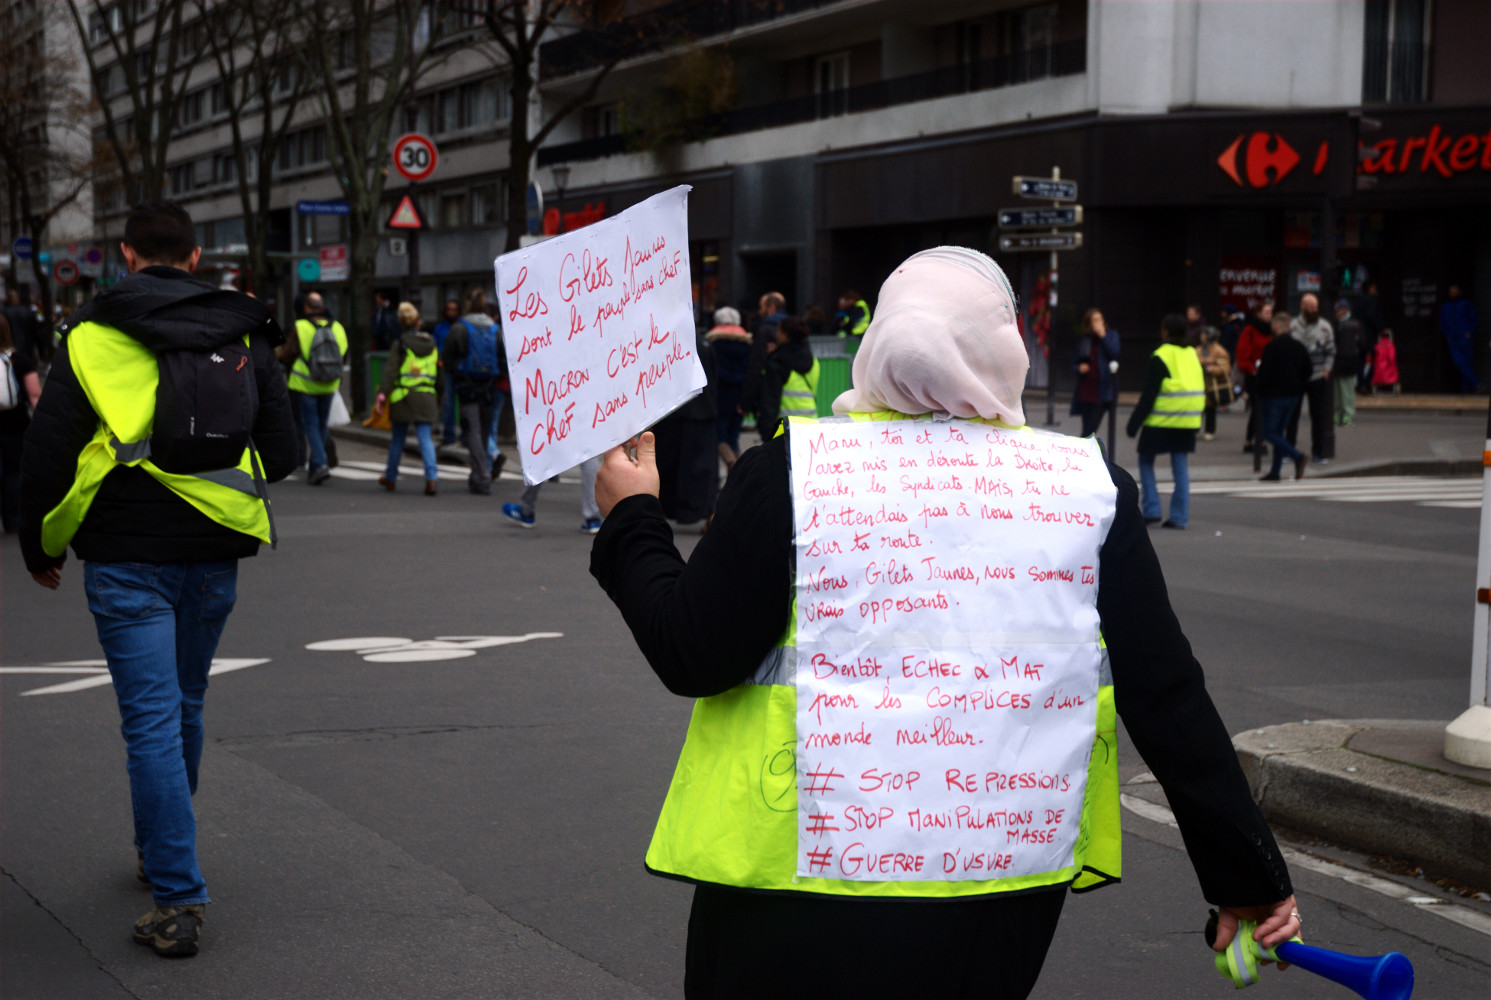 30
Market
Les Gilets Jaunes
sont le peuple sans chef.
MACRON c'est le
chef sans peuple.
Manu, toi et ta clique, vous
l'avez mis en déroute la Droite, la
Gauche, les Syndicats. MAIS, tu ne
t'attendais pas à nous trouver
sur ta route.
Nous, Gilets Jaunes, nous sommes tes
vrais opposants.
Bientôt, ECHEC & MAT
pour les COMPLICES d'un
monde meilleur.
# STOP REPRESSIONS.
# STOP MANIPULATIONS DE
MASSE.
# GUERRE D'USURE.